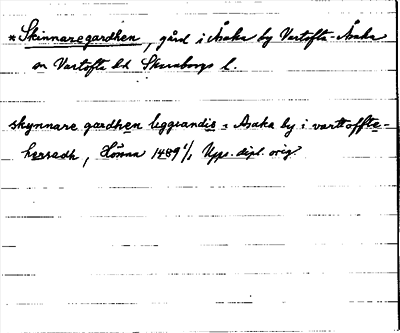 *Skinnaregardhen, gård i Åsaka by Vartofta-Åsaka
sn Vartofta hd Skaraborgs l.
skynnare gardhen liggiandis i Asaka by i varttoffte-
herradh, 1489 1/1 Upps. dipl. orig.